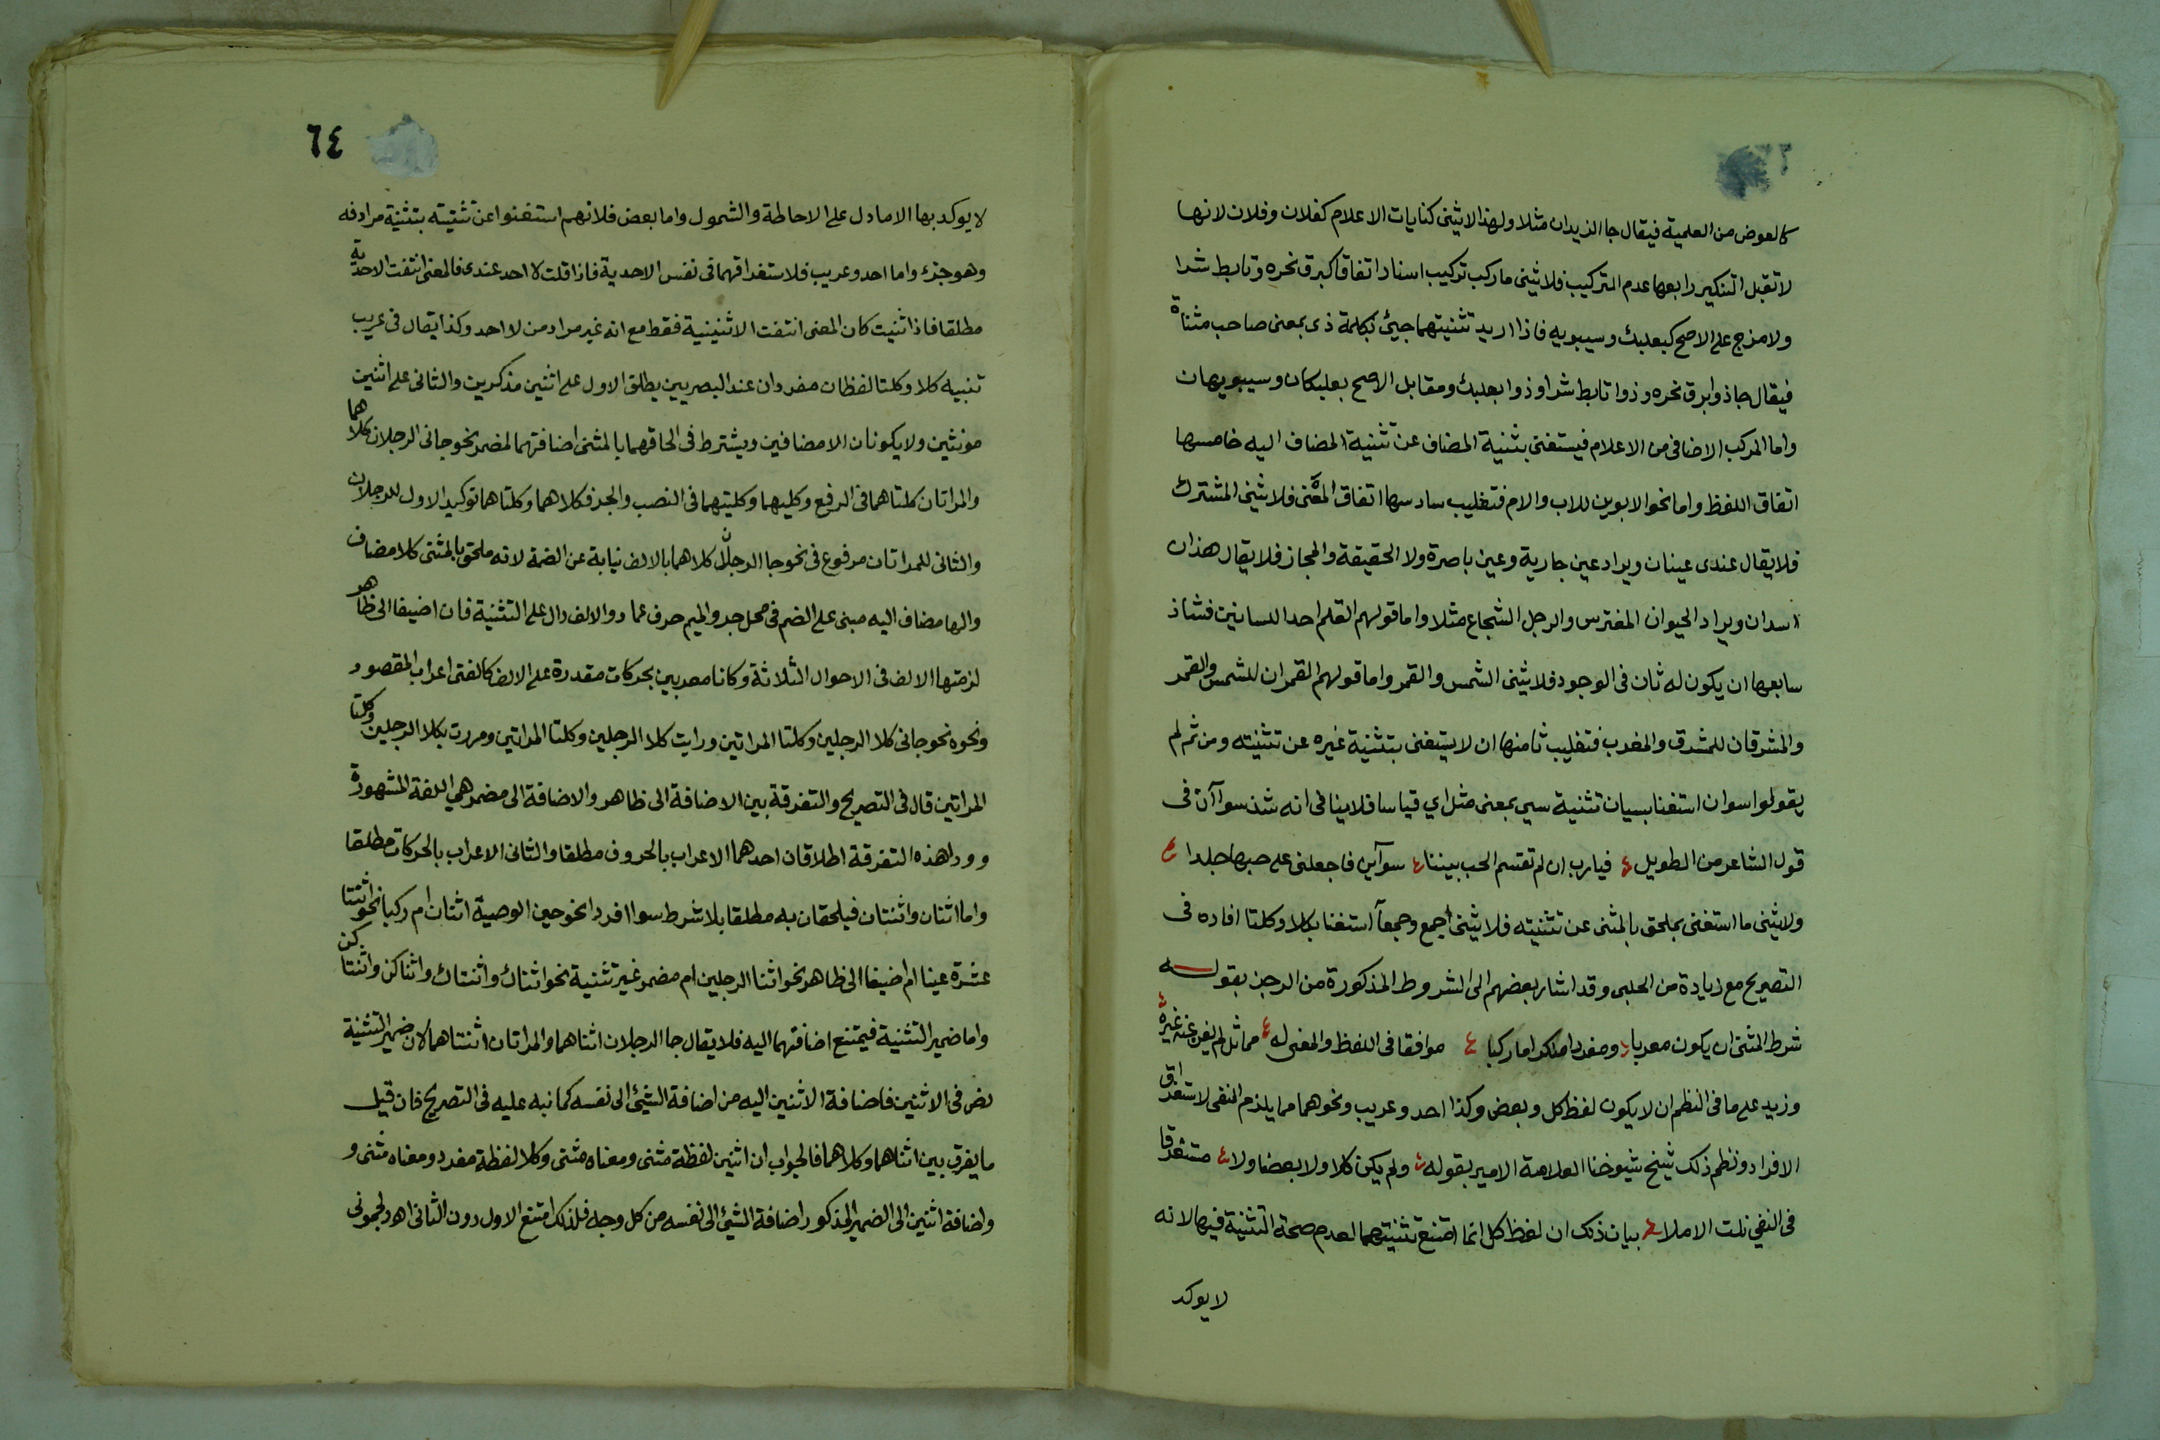 كالعوض من العلمية فيقال جا الزيدان مثلا ولهذا لا يثنى كنايات الاعلام كفلان وفلان لانها
لا تقبل التنكير رابعها عدم التركيب فلا يثنى ما ركب تركيب اسناد اتفاقا كبرق نحره وتابط شرا
ولا مزج على الاصح كبعلبك وسيبويه فاذا اريد تثنيتهما جيئ بكلمة ذى بمعنى صاحب مثناة
فيقال جا ذوا برق نحره وذوا تابط شرا وذوا بعلبك ومقابل الاصح بعلبكان وسيبويهان
واما المركب الاضافى من الاعلام فيستغنى بتثنية المضاف عن تثنية المضاف اليه خامسها
اتفاق اللفظ واما نحو الابوين للاب والام فتغليب سادسها اتفاق المعنى فلا يثنى المشترك
فلا يقال عندى عينان ويراد عين جارية وعين باصرة ولا الحقيقة والمجاز فلا يقال هذان
اسدان ويراد الحيوان المفترس والرجل الشجاع مثلا واما قولهم القلم احد اللسانين فشاذ
سابعها ان يكون له ثان فى الوجود فلا يثنى الشمس والقمر واما قولهم القمران للشمس والقمر
والمشرقان للمشرق والمغرب فتغليب ثامنها ان لا يستغنى بتثنية غيره عن تثنيته ومن ثم لم
يقولوا سوان استغنا بسيان تثنية سي بمعنى مثل اي قياسا فلا ينافى انه شذ سواآن فى
قول الشاعر من الطويل فيارب ان لم تقسم الحب بيننا سوآين فاجعلنى على حبها جلدا
ولا يثنى ما استغنى بملحق بالمثنى عن تثنيته فلا يثنى اجمع وجمعآ استغنا بكلا وكلتا افاده فى
التصريح مع زيادة من الحلبى وقد اشار بعضهم الى الشروط المذكورة من الرجز بقوله
شرط المثنى ان يكون معربا ومفردا منكرا ما ركبا موافقا فى اللفظ والمعنى له مماثل لم يغن عنه غيره
وزيد على ما فى النظم ان لا يكون لفظ كل وبعض وكذا احد وعريب ونحوهما مما يلزم النفى لاستغراق
الافراد ونظم ذلك شيخ شيوخنا العلامة الامير بقوله ولم يكن كلا ولا بعضا ولا مستغرقا
فى النفى نلت الاملا بيان ذلك ان لفظ كل انما امتنع تثنيتهما لعدم صحة التثنية فيها لانه
لا يوكد
٦٤
لا يوكد بها الا ما دل على الاحاطة والشمول واما بعض فلانهم استغنوا عن تثنيته بتثنية مرادفه
وهو جزء واما احد وعريب فلاستغراقهما فى نفس الاحدية فاذا قلت لا احد عندى فالمعنى انتفت الاحدية
مطلقا فاذا ثنيت كان المعنى انتفت الاثنينية فقط مع انه غير مراد من لا احد وكذا يقال فى عريب
تنبيه كلا وكلتا لفظان مفردان عند البصريين يطلق الاول على اثنين مذكرين والثانى على اثنين
مونثين ولا يكونان الا مضافين ويشترط فى الحاقهما بالمثنى اضافتهما لمضمر نحو جانى الرجلان كلاهما
والمراتان كلتاهما فى الرفع وكليهما وكلتيهما فى النصب والجر فكلاهما وكلتاهما توكيد الاول للرجلان
والثانى للمراتان مرفوع فى نحو جا الرجلان كلاهما بالالف نيابة عن الضمة لانه ملحق بالمثنى كلا مضاف
والها مضاف اليه مبنى على الضم فى محل جر والميم حرف عماد والالف دال على التثنية فان اضيفا الى ظاهر
لزمتها الالف فى الاحوال الثلاثة وكانا معربين بحركات مقدرة على الالف كالفتى اعراب المقصور
ونحوه نحو جانى كلا الرجلين وكلتا المراتين ورايت كلا الرجلين وكلتا المراتين ومررت بكلا الرجلين وكلتا
المراتين قال فى التصريح والتفرقة بين الاضافة الى ظاهر والاضافة الى مضمر هي اللغة المشهورة
وورا هذه التفرقة اطلاقان احدهما الاعراب بالحروف مطلقا والثانى الاعراب بالحركات مطلقا
واما اثنان واثنتان فيلحقان به مطلقا بلا شرط سوا افردا نحو حين الوصية اثنان ام ركبا نحو اثنتا
عشرة عينا ام اضيفا الى ظاهر نحو اثنا الرجلين ام مضمر غير تثنية نحو اثناك واثنتاك واثناكن واثنتاكن
واما ضمير التثنية فيمتنع اضافتهما اليه فلا يقال جا الرجلان اثناهما والمراتان اثنتاهما لان ضمير التثنية
نص فى الاثنين فاضافة الاثنين اليه من اضافة الشيئ الى نفسه كما نبه عليه فى التصريح فان قيل
ما يفرق بين اثناهما وكلاهما فالجواب ان اثنين لفظة مثنى ومعناه مثنى وكلا لفظة مفرد ومعناه مثنى و
واضافة اثنين الى الضمير المذكور اضافة الشيئ الى نفسه من كل وجه فلذلك امتنع الاول دون الثانى اهـ